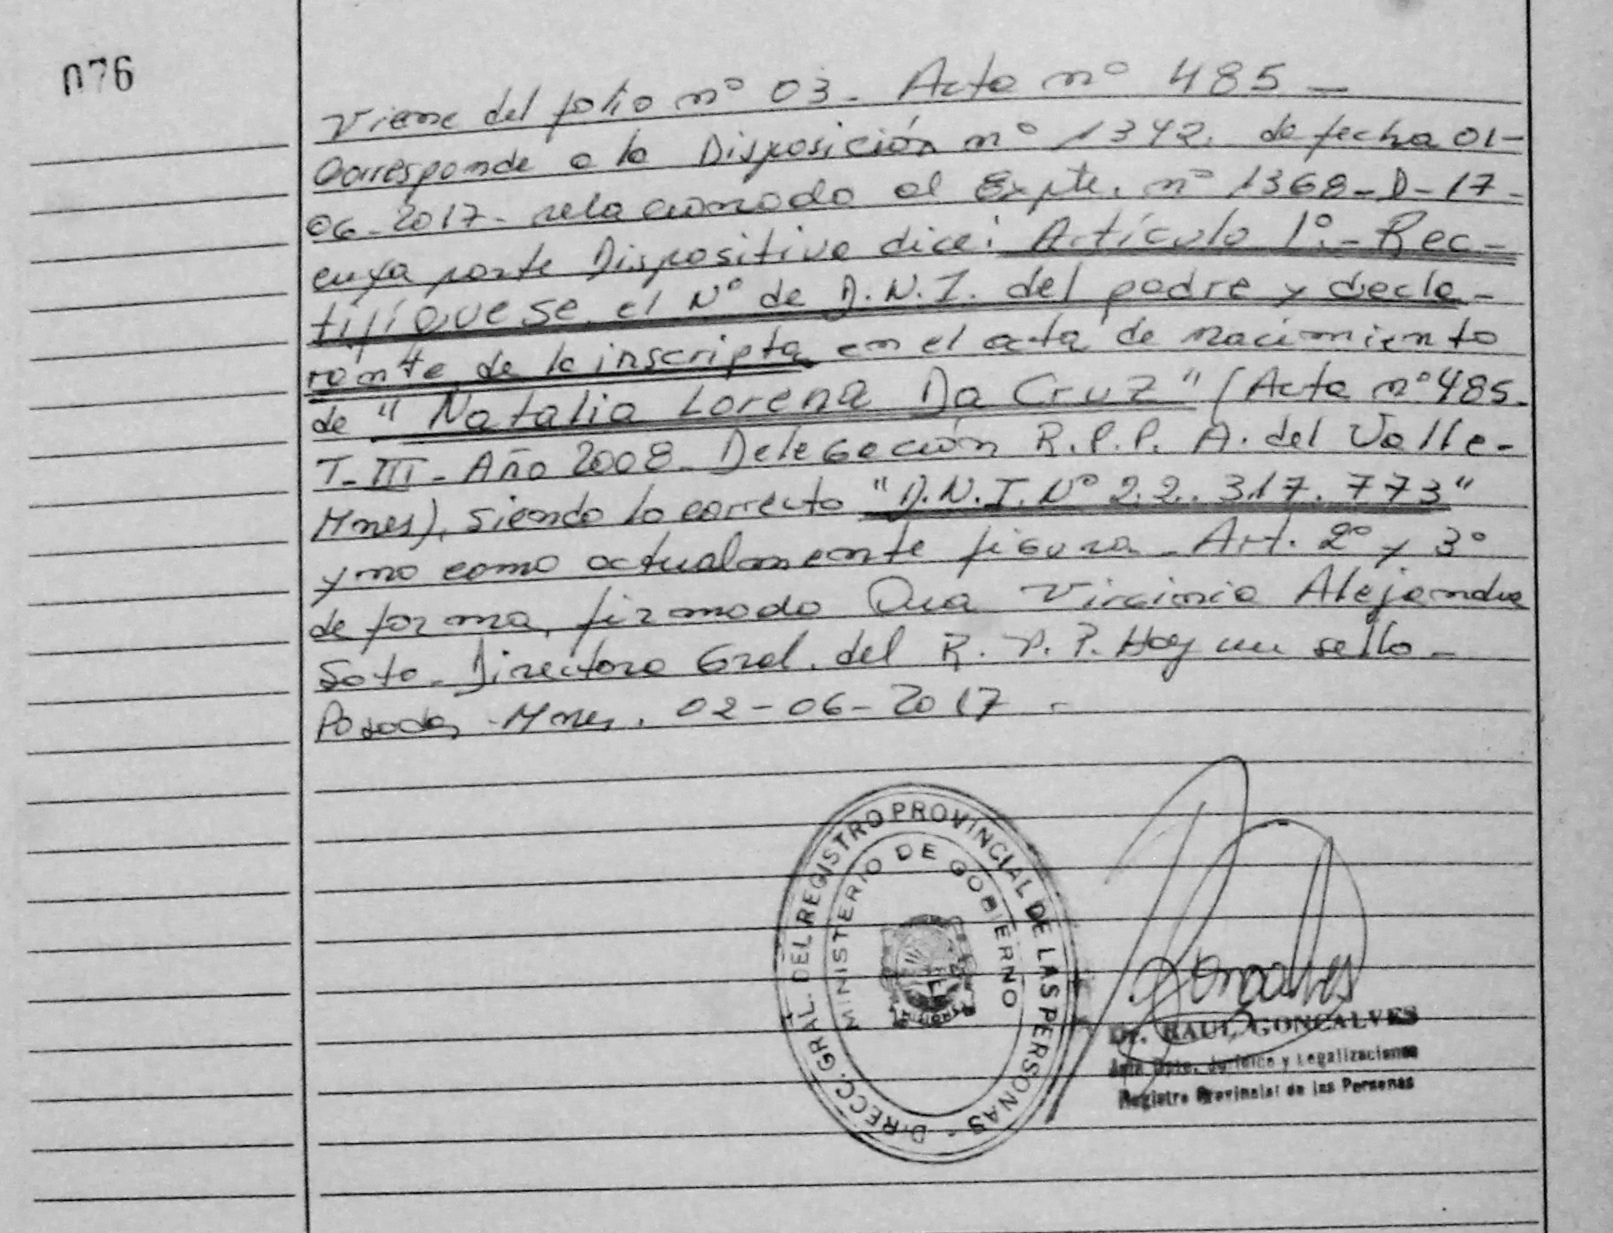 076
Viene del folio nº 03. Acta nº 485 —
Corresponde a la Disposición nº 1342. de fecha 01-
06-2017- relacionado al Expte. nº 1368-D-17-
cuya parte Dispositiva dice: Artículo 1º.- Rec-
tifíquese, el Nº de D.N.I. del padre y decla-
rante de la inscripta en el acta de nacimiento
de "Natalia Lorena Da Cruz" (Acta nº 485.
T-III- Año 2008- Delegación R.P.P. A. del Valle-
Mnes), siendo lo correcto "D.N.I. Nº 22.317.773"
y no como actualmente figura- Art. 2º y 3º
de forma, firmado Dra Virginia Alejandra
Soto- Directora Gral. del R.P.P. Hay un sello-
Posadas -Mnes, 02-06-2017 -
DIRECC. GRAL. DEL REGISTRO PROVINCIAL DE LAS PERSONAS -
MINISTERIO DE GOBIERNO
Goncalves
Dr. RAUL GONCALVES
Jefe Dpto. Jurídico y Legalizaciones
Registro Provincial de las Personas